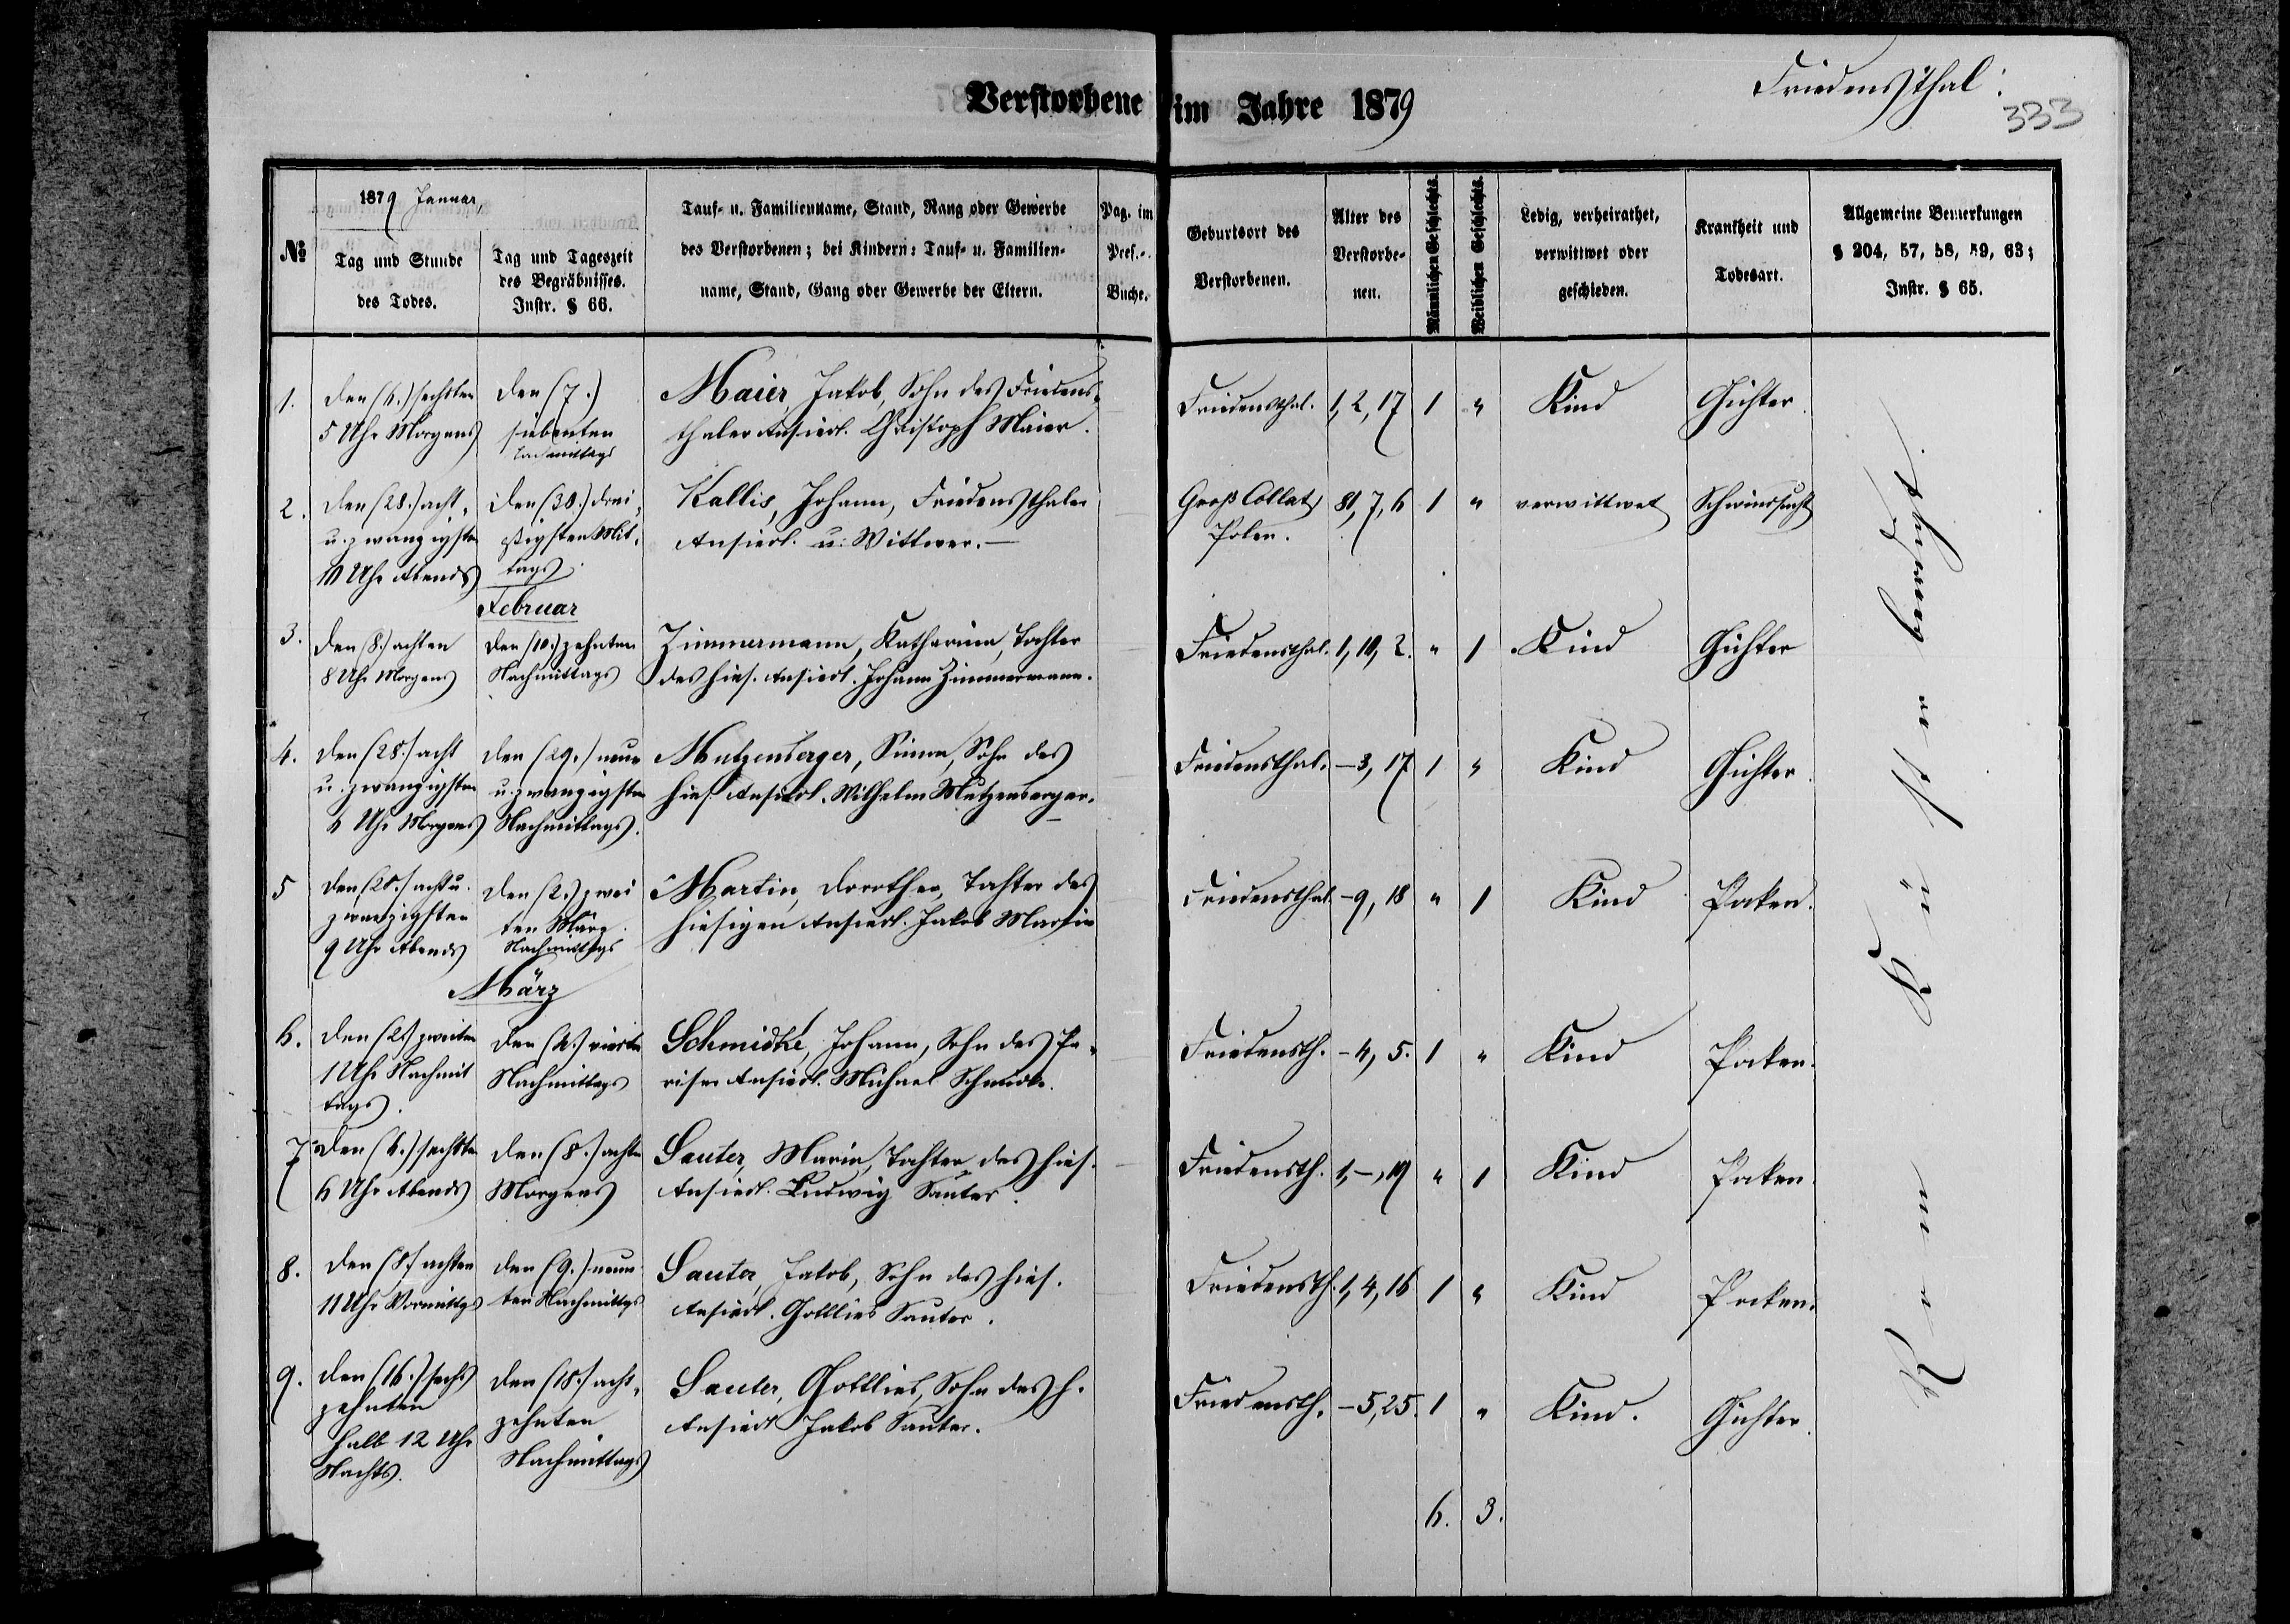 Friedensthal:
333
Verstorbene im Jahre 1879
№
1879 Januar,
Tag und Stunde
des Todes.
Tag und Tageszeit
des Begräbnisses.
Instr. § 66.
Tauf- u. Familienname, Stand, Rang oder Gewerbe
des Verstorbenen; bei Kindern: Tauf- u. Familien-
name, Stand, Gang oder Gewerbe der Eltern.
Pag. im
Pers.-
Buche.
Geburtsort des
Verstorbenen.
Alter des
Verstorbe-
nen.
Männlichen Geschlechts.
Weiblichen Geschlechts.
Ledig, verheirathet,
verwittwet oder
geschieden.
Krankheit und
Todesart.
Allgemeine Bemerkungen
§ 204, 57, 58, 59, 63;
Instr. § 65.
1.
den (6.) sechsten
5 Uhr Morgens
den (7.)
siebenten
Nachmittags
Maier, Jakob, Sohn des Friedens-
thaler Ansiedl. Christoph Maier.
Friedensthal. 1, 2, 17 1 " Kind Gichter.
2.
den (28.) acht-
u. zwanzigsten
10 Uhr Abends
den (30.) drei-
ßigsten Mit-
tags
Kallis, Johann, Friedensthaler
Ansiedl. u. Wittwer.—
Groß Collatz
Polen.
81, 7, 6 1 " verwittwet Schwindsucht
Februar
3.
den (8.) achten
8 Uhr Morgens
den (10.) zehnten
Nachmittags
Zimmermann, Katharina, Tochter
des hies. Ansiedl. Johann Zimmermann.
Friedensthal. 1, 10, 2. " 1 Kind Gichter
4.
den (28.) acht
u. zwanzigsten
6 Uhr Morgens
den (29.) neun
u. zwanzigsten
Nachmittags.
Mutzenberger, Simon, Sohn des
hies. Ansiedl. Wilhelm Mutzenberger.
Friedensthal. —3, 17 1 " Kind Gichter.
5
den (28.) acht u.
zwanzigsten
9 Uhr Abends
den (2.) zwei
ten März.
Nachmittags
Martin, Dorothea, Tochter des
hiesigen Ansiedl. Jakob Martin
Friedensthal. —9, 18 " 1 Kind Poken.
März
6.
den (2.) zweiten
1 Uhr Nachmit
tags.
den (4.) vierten
Nachmittags
Schmidke, Johann, Sohn des Pa-
riser Ansiedl. Michael Schmidke.
Friedensth. —4, 5. 1 " Kind Poken.
7
den (6.) sechsten
6 Uhr Abends
den (8.) achten
Morgens
Sauter, Maria, Tochter des hies.
Ansiedl. Ludwig Sauter.
Friedensth. 1, —, 19 " 1 Kind Poken.
8.
den (8.) achten
11 Uhr Vormittgs
den (9.) neun
ten Nachmittgs
Sauter, Jakob, Sohn des hies.
Ansiedl. Gottlieb Sauter.
Friedensth. 1, 4, 16 1 " Kind Poken.
9.
den (16.) sechs
zehnten
halb 12 Uhr
Nachts.
den (18.) acht-
zehnten
Nachmittags
Sauter, Gottlieb, Sohn des h.
Ansiedl. Jakob Sauter.
Friedensth. —5, 25. 1 " Kind. Gichter.
6. 3.